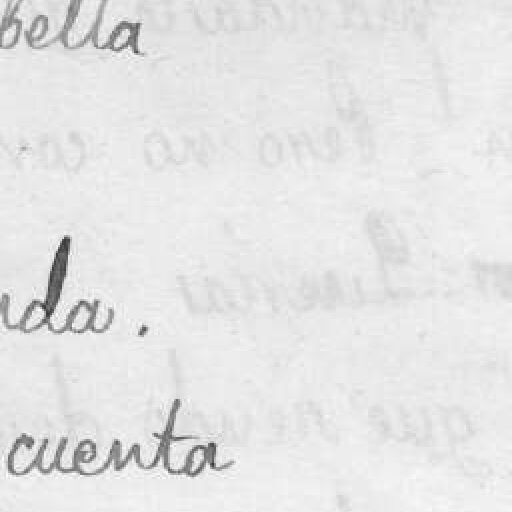 bella
nda.
cuenta